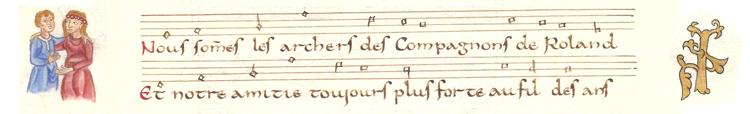 Nous som̃es les archers des Compagnons de Roland
Et notre amitie toujours plus forte au fil des ans